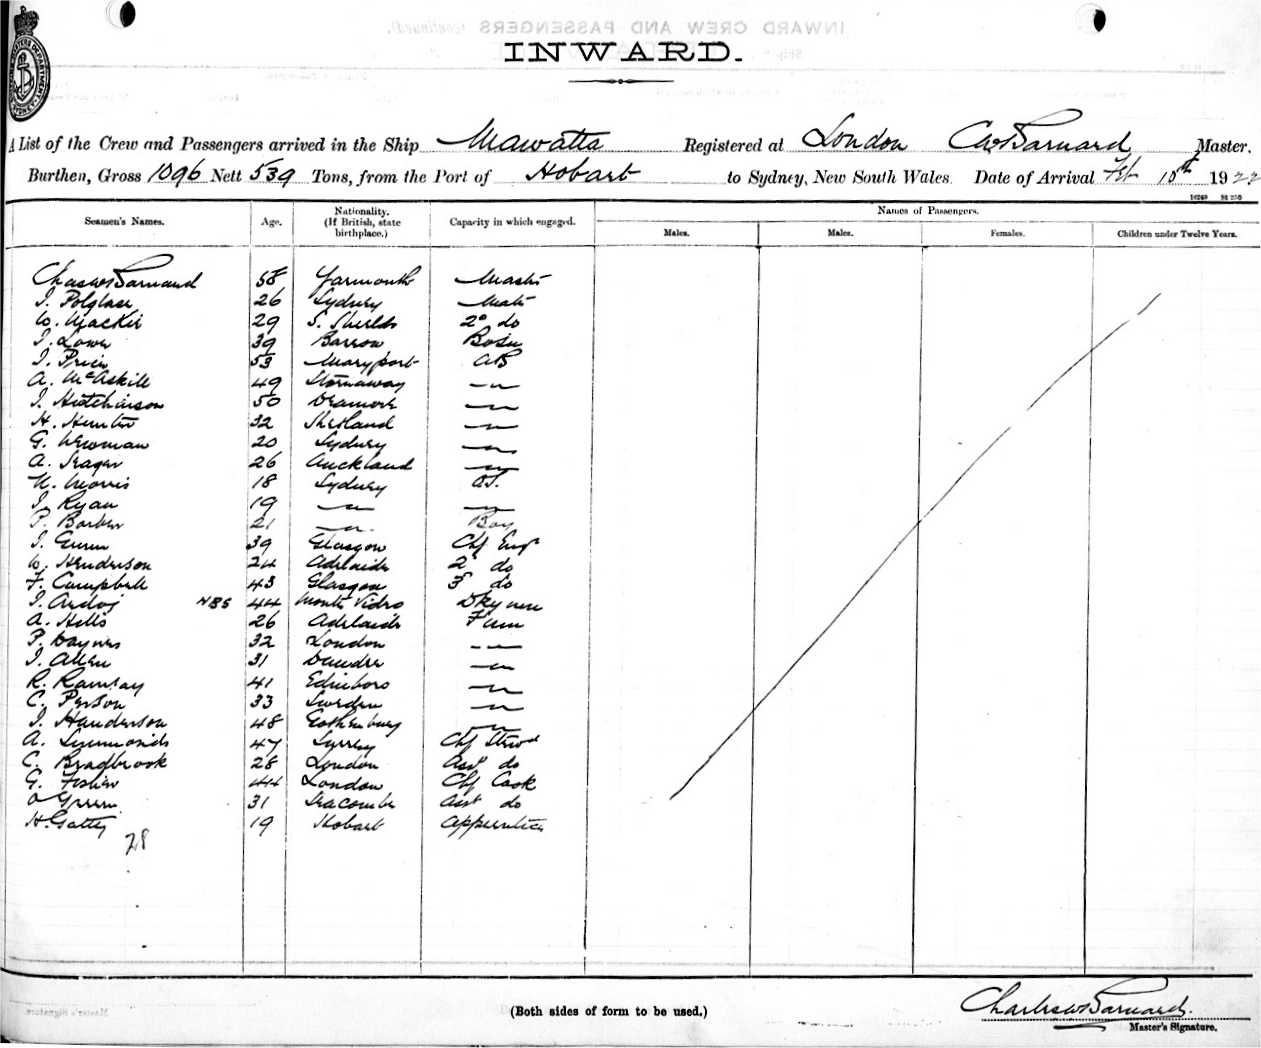 INWARD.
A List of the Crew and Passengers arrived in the Ship Mawatta Registered at London Chas Barnard Master.
Burthen, Gross 1096 Nett 539 Tons, from the Port of Hobart to Sydney, New South Wales. Date of Arrival Feb 10th 1922
Seamen's Names. Age. Nationality. (If British, state birthplace.) Capacity in which engaged. Names of Passengers.
Males. Males. Females. Children under Twelve Years.
Chas W Barnard 58 Yarmouth Master
J. Polglase 26 Sydney Mate
W. Mackie 29 S. Shields 2nd do
J. Lowe 39 Barrow Bosun
J. Price 53 Maryport AB
A. McAskill 49 Stornaway —"—
J. Hutchinson 50 —"—
H. Hunter 32 Shetland —"—
G. Newman 20 Sydney —"—
A. Seager 26 Auckland —"—
N. Morris 18 Sydney O.S.
J. Ryan 19 —"— —"—
P. Barber 21 —"— Boy
J. 39 Glasgow Chf Engr
W. Henderson 24 Adelaide 2nd do
F. Campbell 43 Glasgow 3rd do
J. NBS 44 Monte Video Dkyman
A. Hills 26 Adelaide F'man
P. Haynes 32 London —"—
J. Allen 31 Dundee —"—
R. Ramsay 41 Edinboro —"—
C. Person 33 Sweden —"—
J. Handerson 48 Gothenburg —"—
A. Symmonds 47 Surrey Chf Stewd
C. Bradbrook 28 London Asst do
G. Fisher 44 London Chf Cook
O Green 31 Seacombe Asst do
H. Gatty 19 Hobart Apprentice
28
(Both sides of form to be used.)
Charles W Barnard.
Master's Signature.